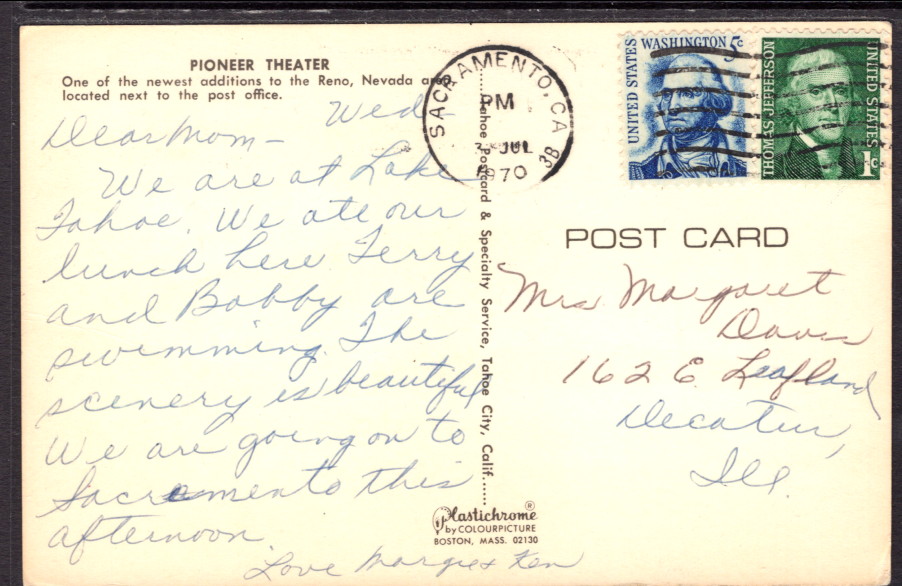 PIONEER THEATER
One of the newest additions to the Reno, Nevada area
located next to the post office.
Wed-
Dear Mom-
We are at Lake
Tahoe. We ate our
lunch here Terry
and Bobby are
swimming. The
scenery is beautiful
We are going on to
Sacramento this
afternoon.
Love Margie & Ken
Tahoe Postcard & Specialty Service, Tahoe City, Calif.......
Plastichrome®
by COLOURPICTURE
BOSTON, MASS. 02130
SACRAMENTO, CA
PM
JUL
1970
3B
UNITED STATES
WASHINGTON 5c
THOMAS JEFFERSON
UNITED STATES
1c
POST CARD
Mrs Margaret
Davis
162 E. Leafland
Decatur,
Ill.